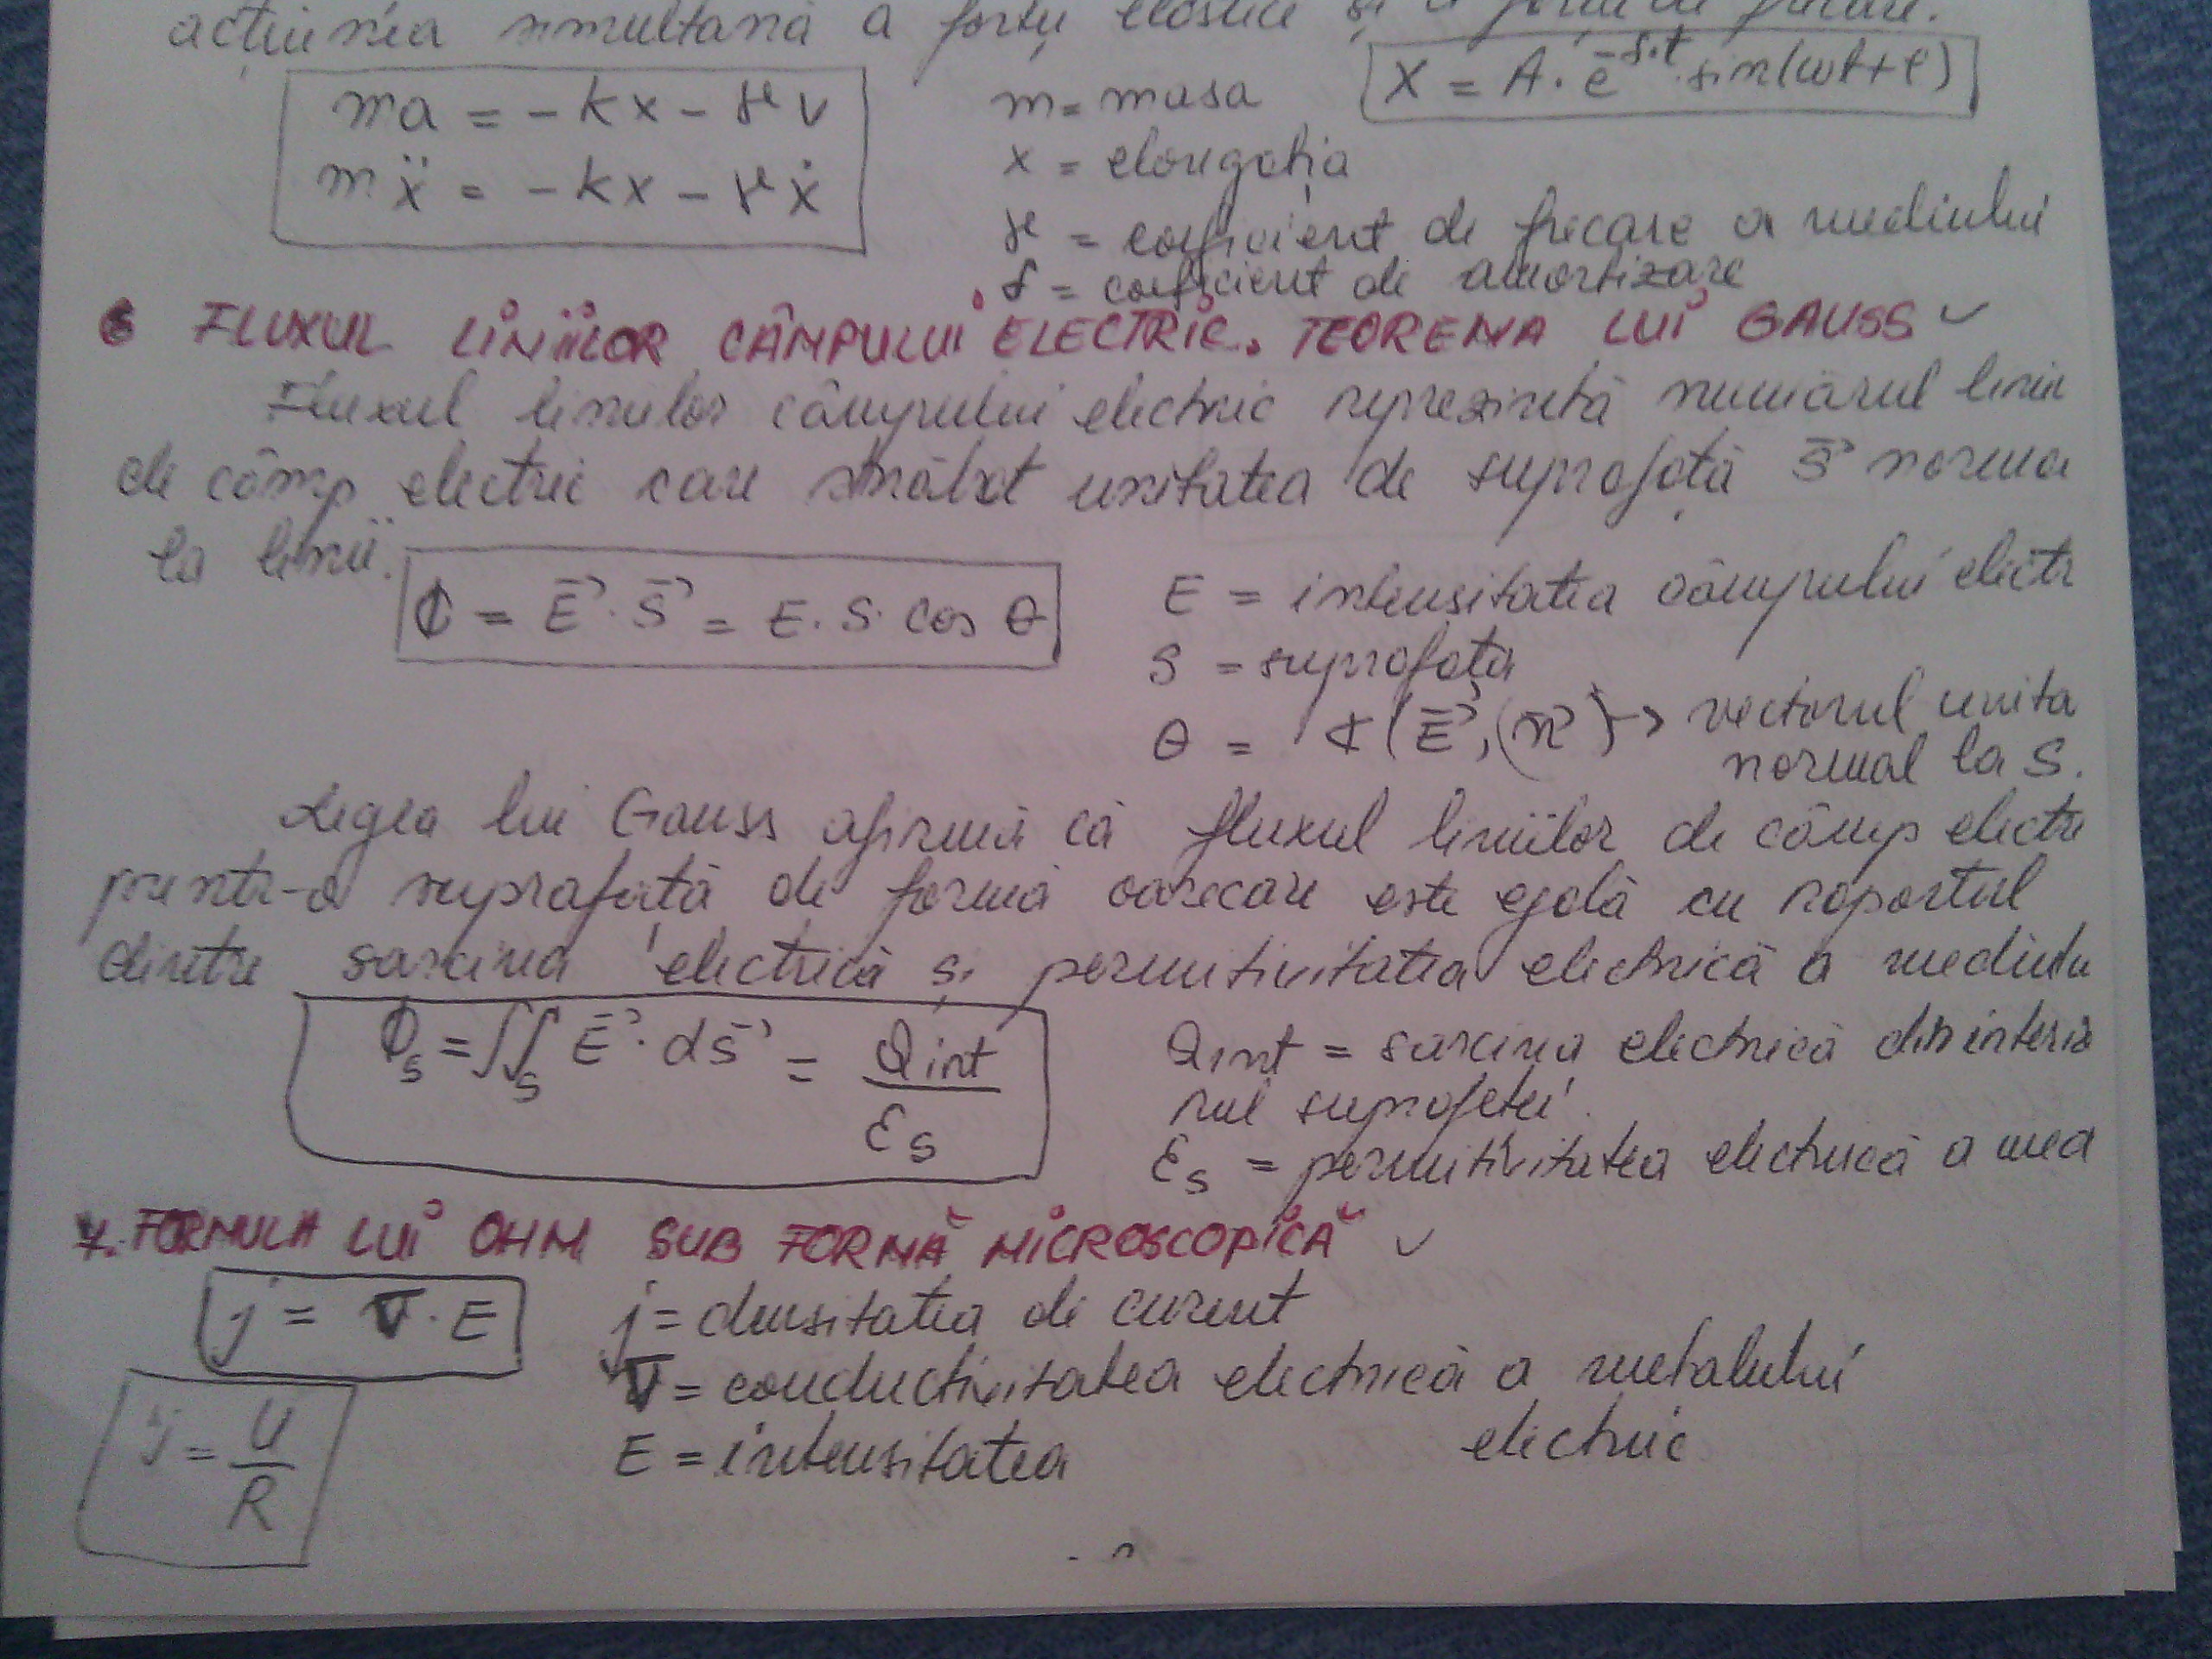 acțiunea simultană a forței elastice și a forței de frecare.
ma = -kx - γv
mẍ = -kx - γẋ
m = masa
X = A · e^(-δ·t) · sin(ωt+φ)
x = elongația
γ = coeficient de frecare a mediului
δ = coeficient de amortizare
6 FLUXUL LINIILOR CÂMPULUI ELECTRIC. TEOREMA LUI GAUSS ✓
Fluxul liniilor câmpului electric reprezintă numărul linii
de câmp electric care străbat unitatea de suprafață S⃗ norma
la linii.
Φ = E⃗ · S⃗ = E · S · cos θ
E = intensitatea câmpului electr
S = suprafața
θ = ∢(E⃗, (n⃗) → vectorul unita
normal la S.
Legea lui Gauss afirmă că fluxul liniilor de câmp electr
printr-o suprafață de formă oarecare este egală cu raportul
dintre sarcina electrică și permitivitatea electrică a mediulu
Φs = ∬s E⃗ · dS⃗ = Qint / εs
Qint = sarcina electrică din interio
rul suprafeței.
εs = permitivitatea electrică a med
7. FORMULA LUI OHM SUB FORMĂ MICROSCOPICĂ ✓
j = σ · E
j = densitatea de curent
σ = conductivitatea electrică a metalului
E = intensitatea electric
j = U / R